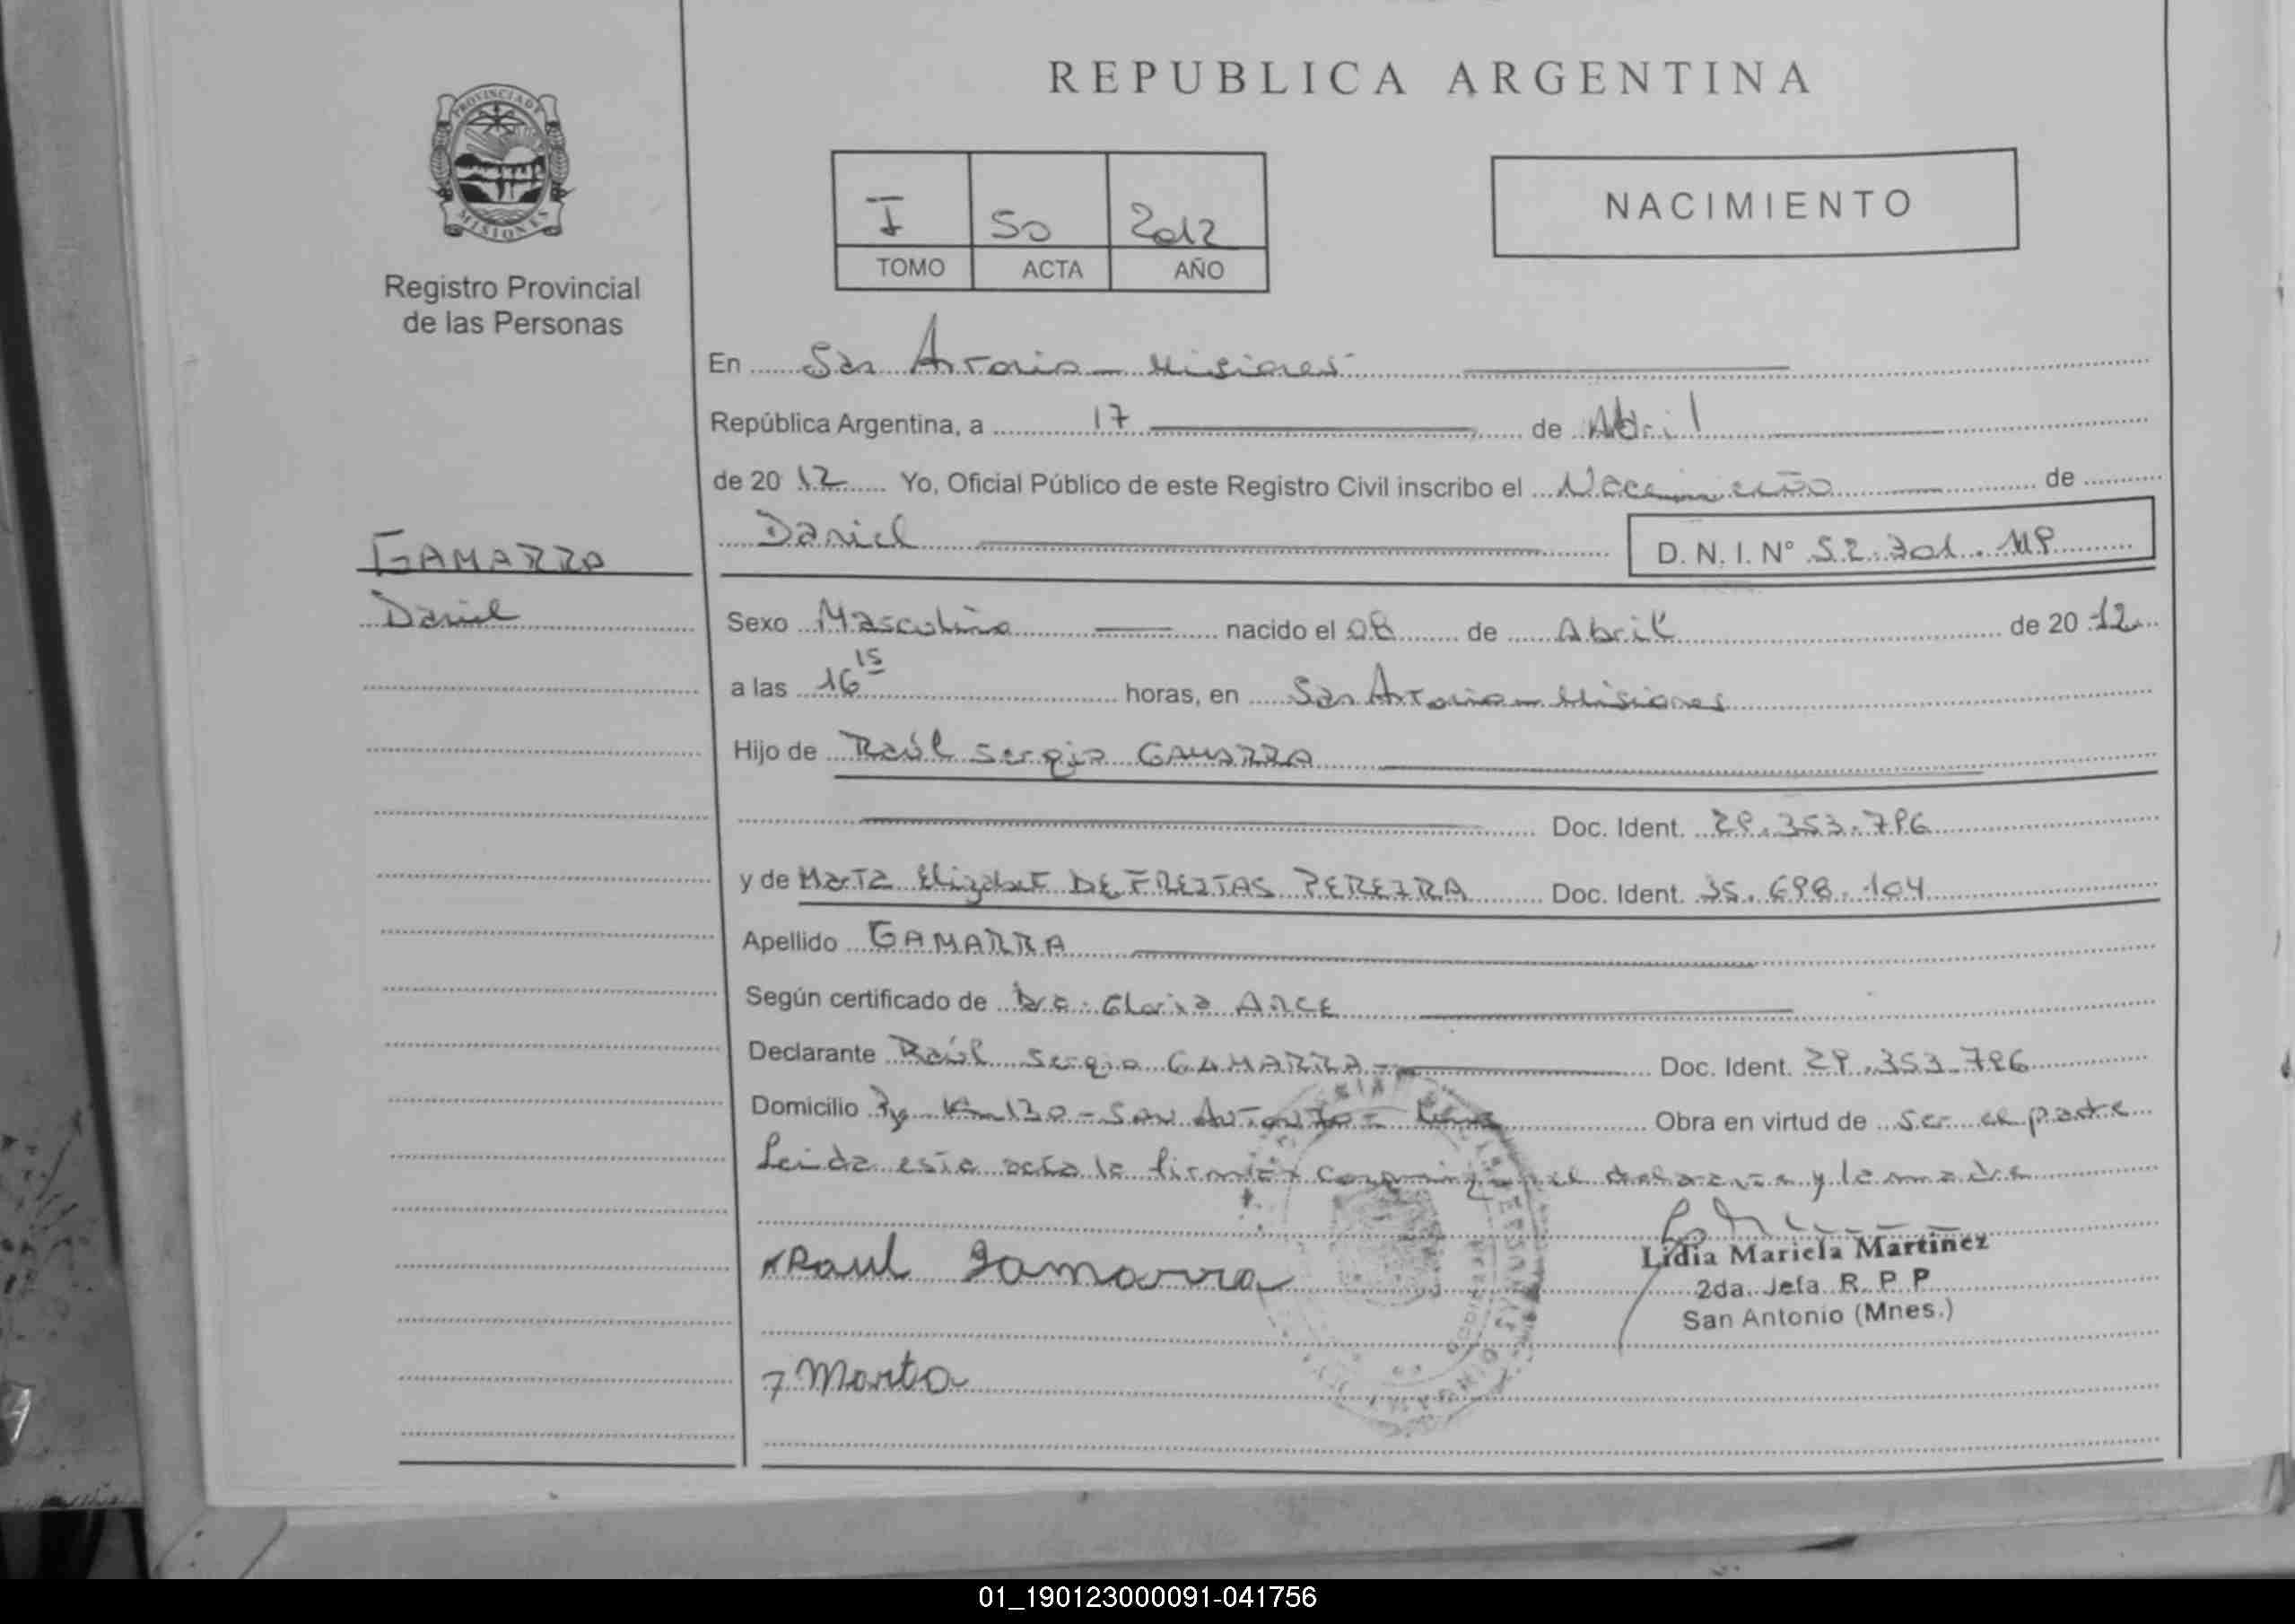 REPUBLICA ARGENTINA
PROVINCIA DE
MISIONES
Registro Provincial
de las Personas
I 50 2012
TOMO ACTA AÑO
NACIMIENTO
En San Antonio - Misiones
República Argentina, a 17 de Abril
de 20 12 Yo, Oficial Público de este Registro Civil inscribo el Nacimiento de
Daniel D. N. I. N° 52.701.
GAMARRA
Daniel
Sexo Masculino nacido el 08 de Abril de 20 12
a las 16 15 horas, en San Antonio - Misiones
Hijo de Raúl Sergio GAMARRA
Doc. Ident. 29.353.796
y de Marta Elizabet DE FREITAS PEREIRA Doc. Ident. 35.698.104
Apellido GAMARRA
Según certificado de Dra. Gloria ARCE
Declarante Raúl Sergio GAMARRA Doc. Ident. 29.353.796
Domicilio Km 130 - SAN ANTONIO - Obra en virtud de Ser el padre
Leída esta acta la firman conmigo el declarante y la madre
Raul Gamarra
Lidia Mariela Martinez
2da. Jefa R. P. P
San Antonio (Mnes.)
Marta
01_190123000091-041756